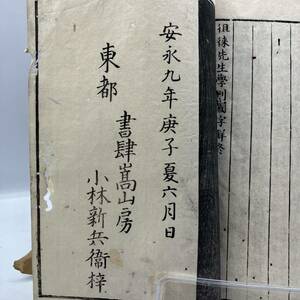 徂徠先生學則國字解終
安永九年庚子夏六月日
東都
書肆嵩山房
小林新兵衞梓